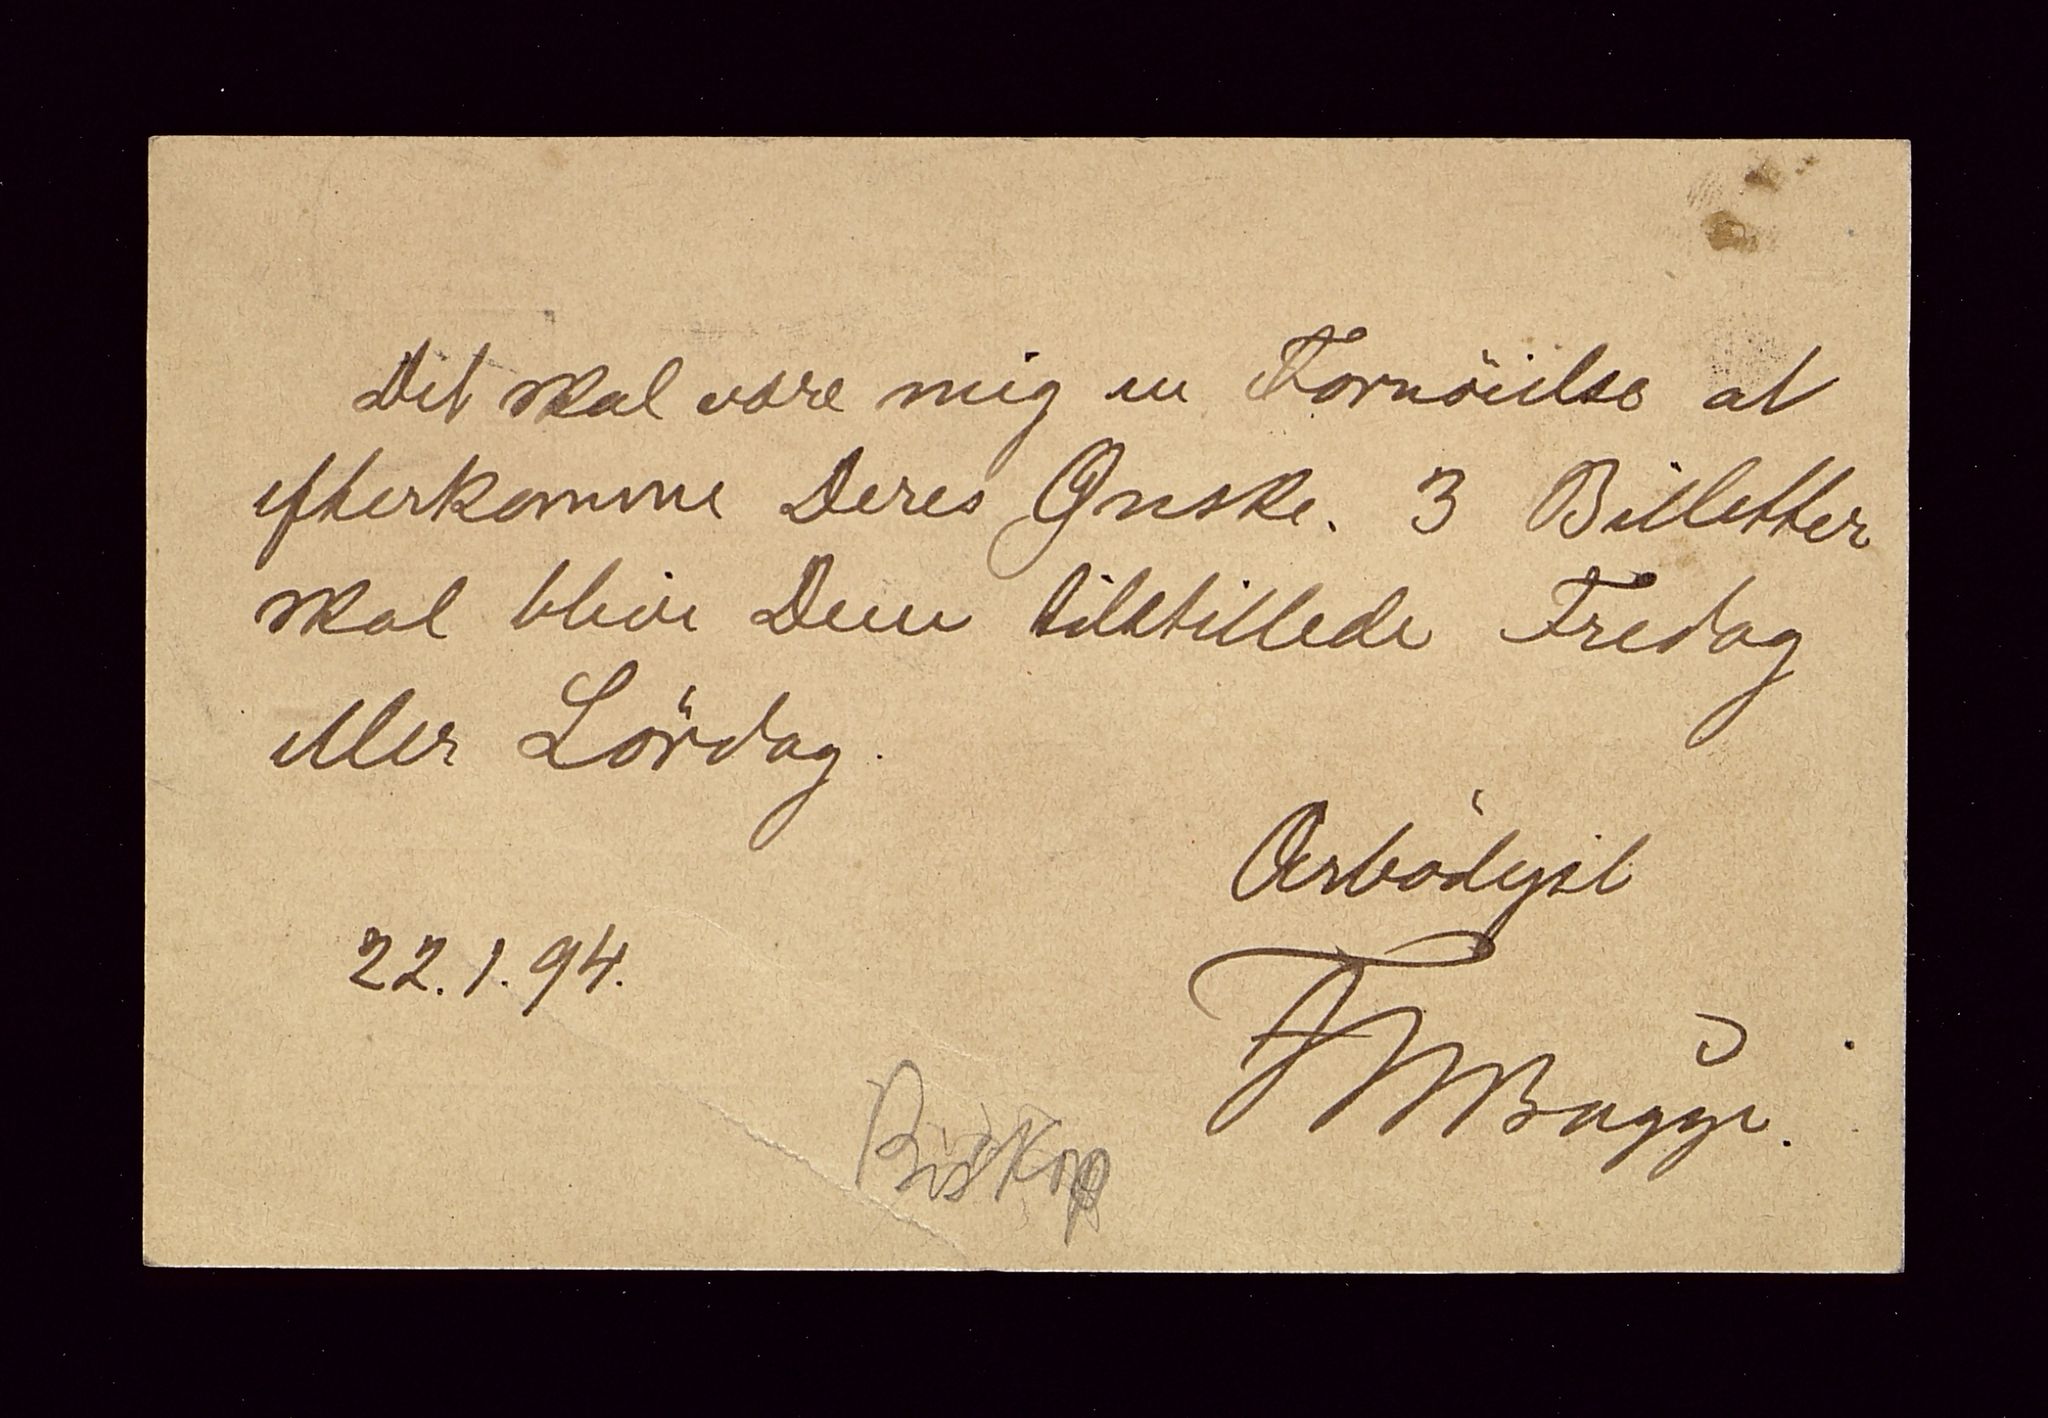 Det skal være mig en Fornöielse at
efterkomme Deres Ønske. 3 Billetter
skal blive Dem tilstillede Fredag
eller Lördag.
Ærbödigst
22.1.94.
Bugge.
Biskop